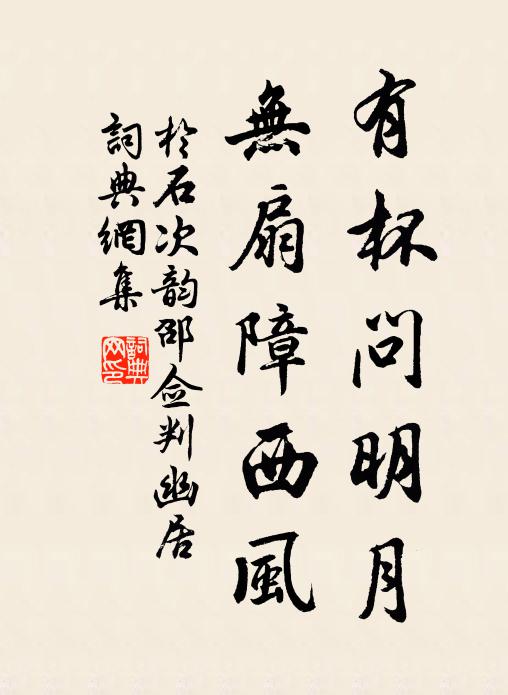 有杯問明月
無扇障西風
於石次韵邵佥判幽居
詞典網集
詞典網印